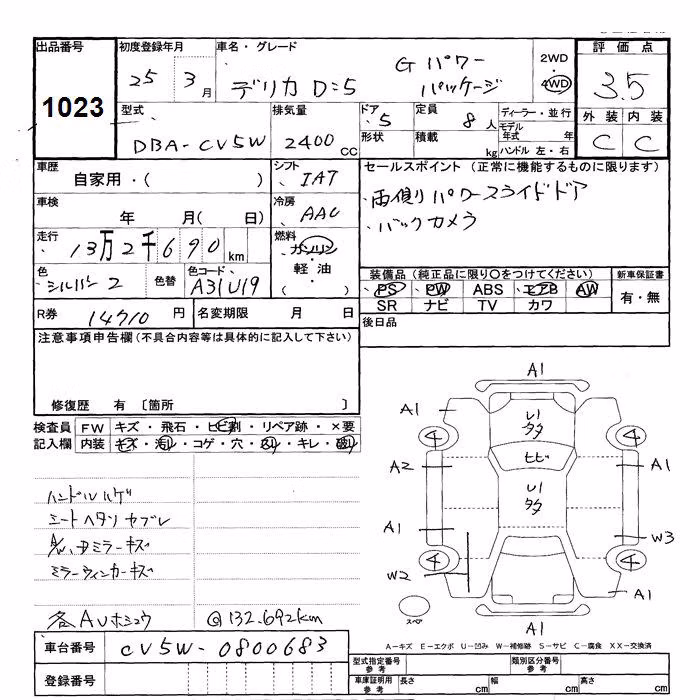 出品番号
1023
初度登録年月
25 3月
車名・グレード
デリカ D:5
G パワーパッケージ
2WD・4WD
評価点
3.5
型式
DBA-CV5W
排気量
2400 cc
ドア
5
形状
定員
8人
積載
kg
ディーラー・並行
モデル年式 年
ハンドル 左・右
外装 内装
C C
車歴
自家用・( )
シフト
IAT
セールスポイント(正常に機能するものに限ります)
両側パワースライドドア
バックカメラ
車検
年 月( 日)
冷房
AAC
走行
13万2千690km
燃料
ガソリン・軽油・( )
色
シルバー2
色替
色コード
A31U19
装備品(純正品に限り○をつけてください)
PS PW ABS エアB AW
SR ナビ TV カワ
新車保証書
有・無
R券 14710円
名変期限 月 日
後日品
注意事項申告欄(不具合内容等は具体的に記入して下さい)
修復歴 有 〔箇所 〕
検査員記入欄
FW キズ・飛石・ヒビ割・リペア跡・×要
内装 キズ・汚レ・コゲ・穴・スリ・キレ・破レ
ハンドルハゲ
シートヘタリ ヤブレ
A/W、Dミラーキズ
ミラーウィンカーキズ
各AUホシュウ
@132.692km
A1
A1
A2
A1
W2
A1
W3
A1
A1
U1
タタ
ヒビ
U1
タタ
4
4
4
4
スペア
A-キズ E-エクボ U-凹み W-補修跡 S-サビ C-腐食 XX-交換済
車台番号
CV5W-0800683
登録番号
型式指定番号 参考
類別区分番号 参考
車庫証明用 参考
長さ cm 幅 cm 高さ cm